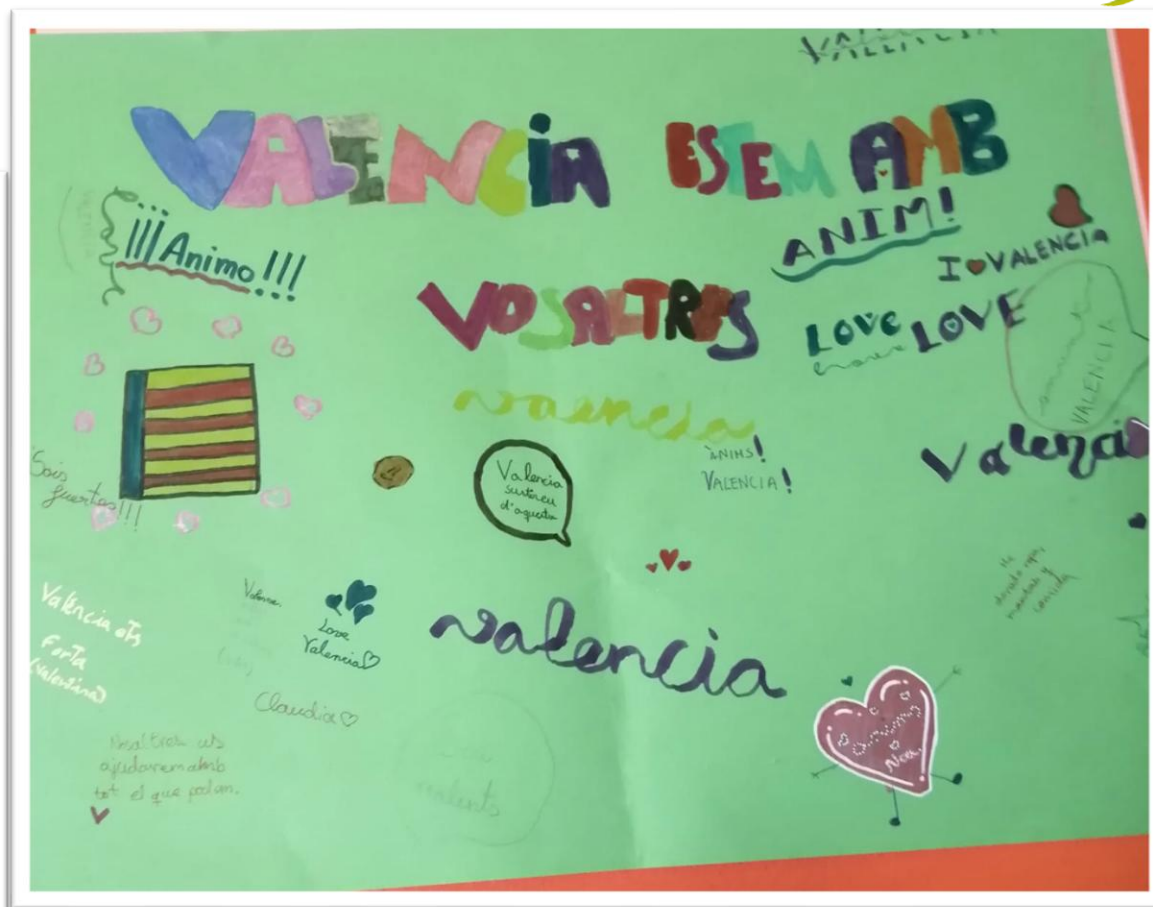 VALENCIA
VALENCIA ESTEM AMB
VOSALTRES
¡¡¡Animo!!!
ANIM!
I VALENCIA
LOVE LOVE
valencia
ÀNIMS!
VALENCIA!
VALENCIA
Valenci
Sois
fuertes!!!
Valencia
surtireu
d'aquesta
Valencia ets
Forta
(Valentina)
Love
Valencia
valencia
Claudia
Nosaltres us
ajudarem amb
tot el que podem.
valents
Noa